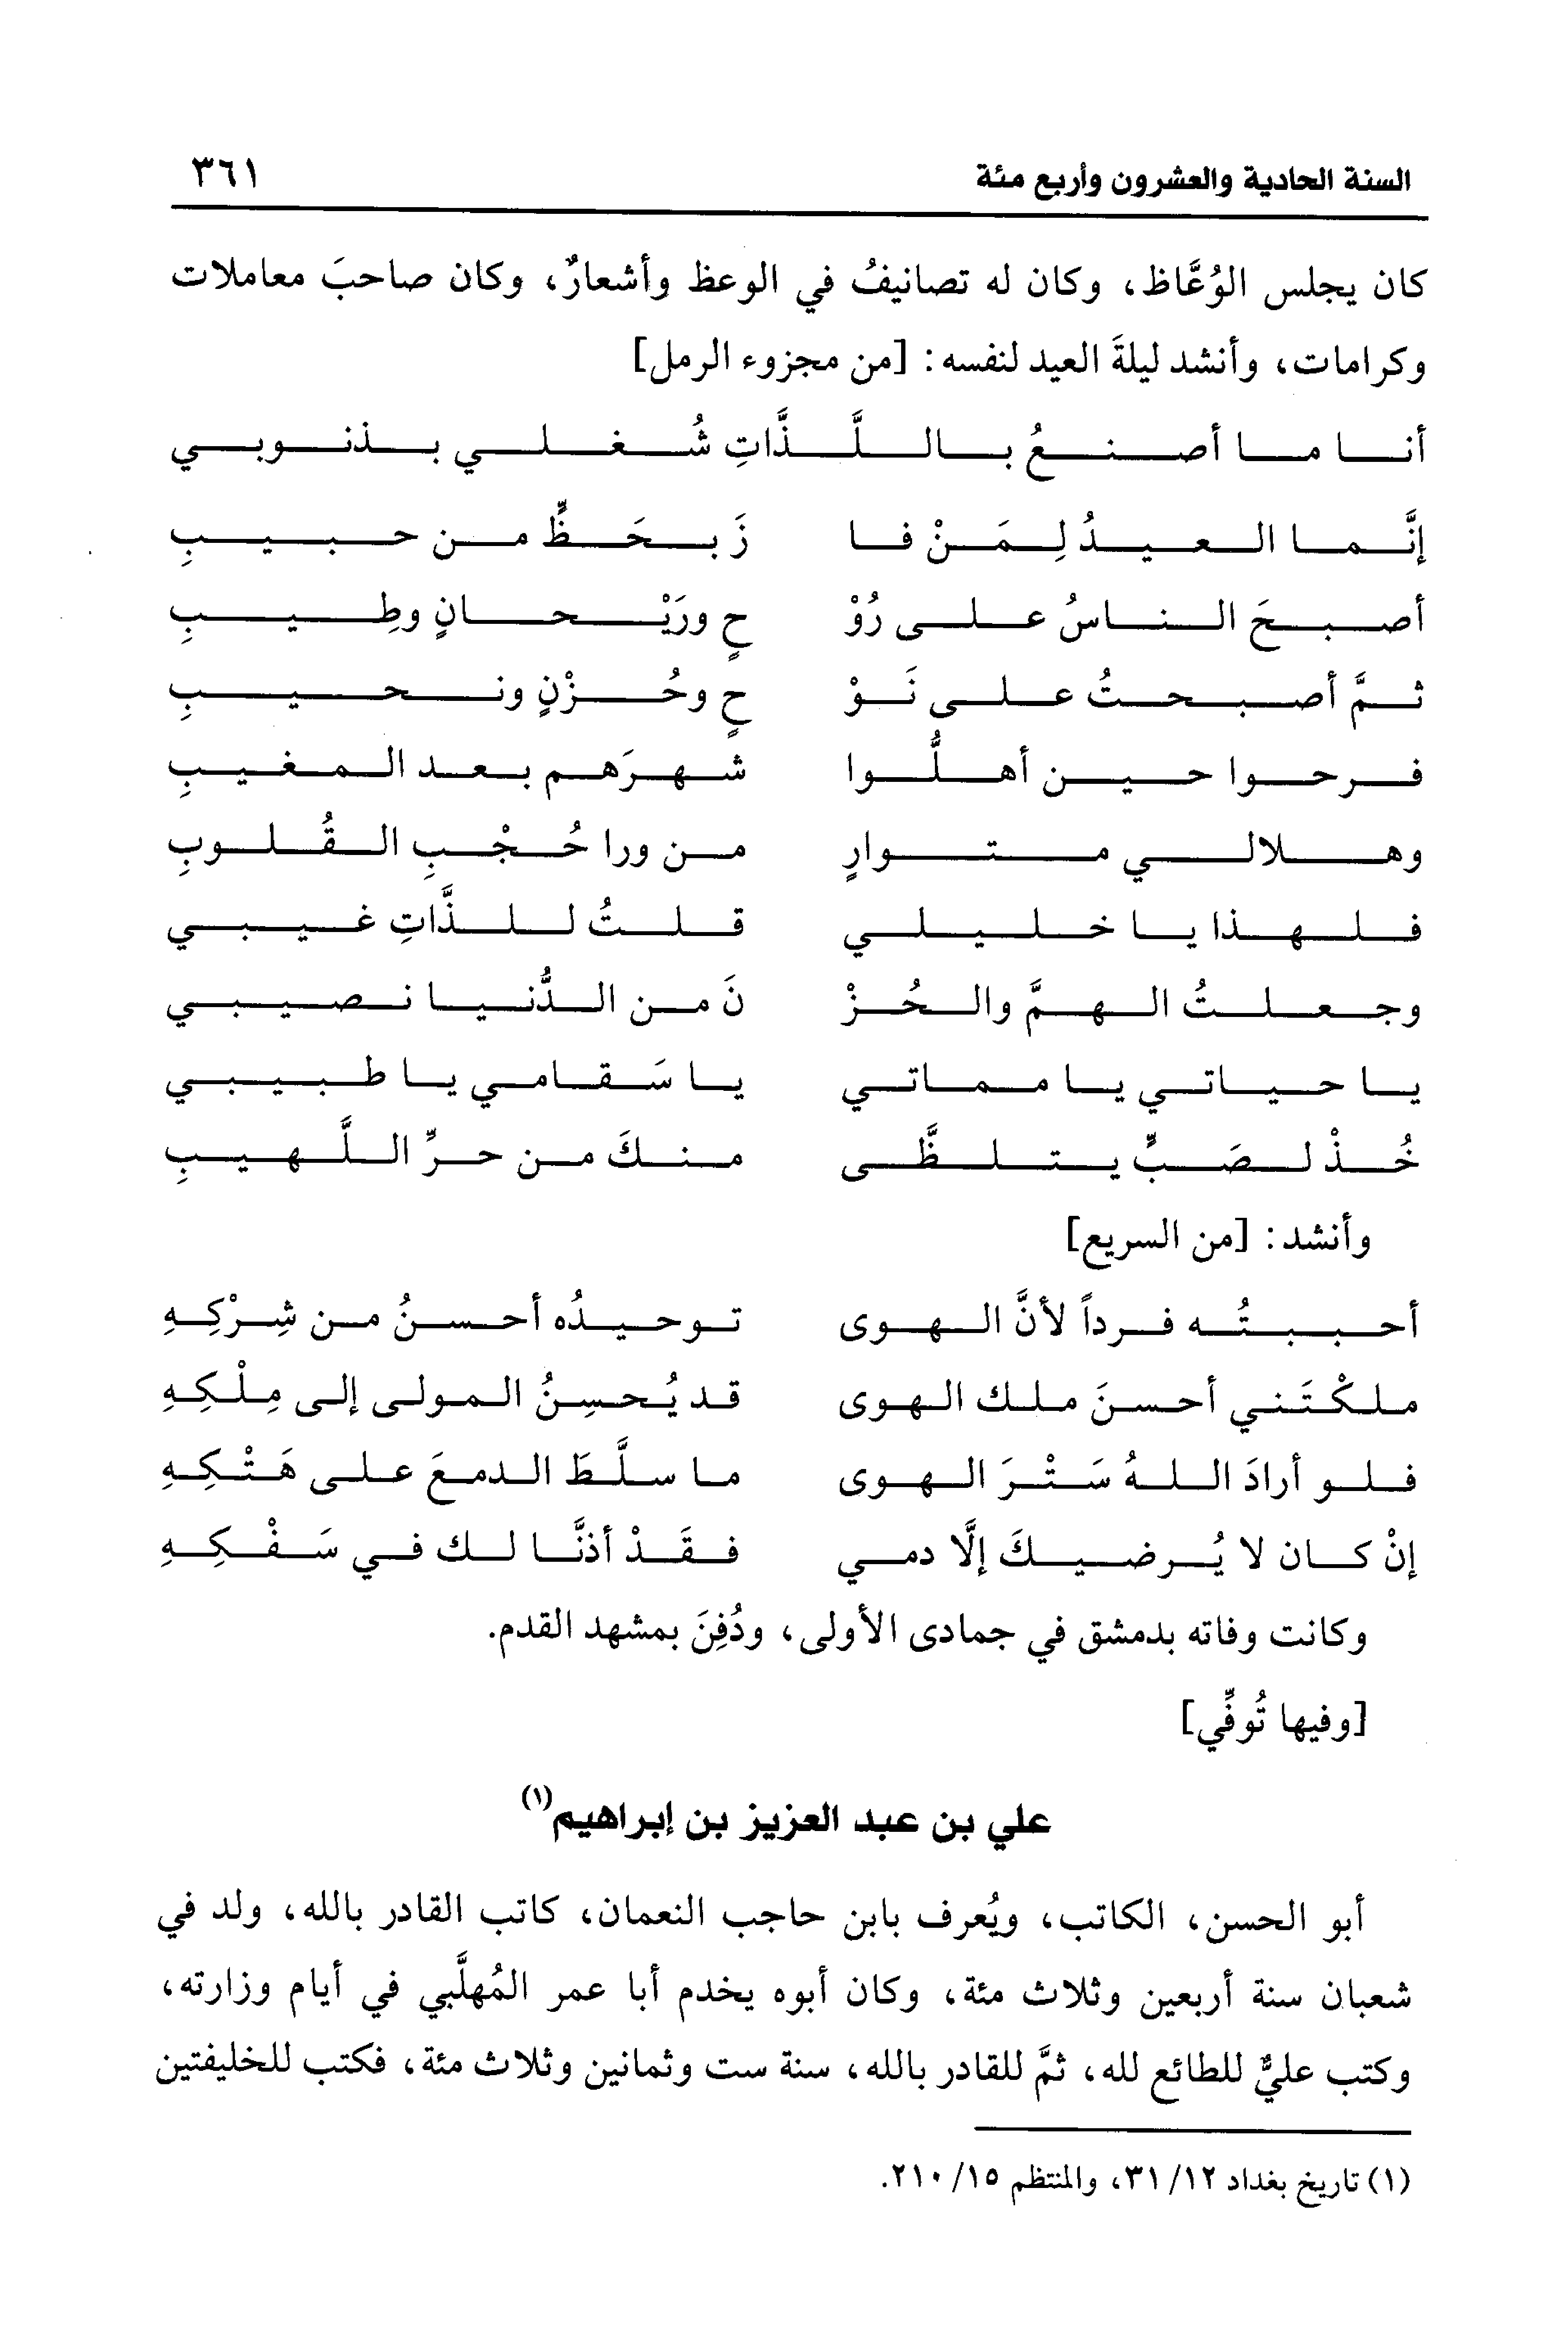 السنة الحادية والعشرون وأربع مئة ٣٦١
كان يجلس الوُعَّاظ، وكان له تصانيفُ في الوعظ وأشعارٌ، وكان صاحبَ معاملات
وكرامات، وأنشد ليلةَ العيد لنفسه: [من مجزوء الرمل]
أنا ما أصنعُ باللَّذَّاتِ شُغلي بذنوبي
إنَّما العيدُ لِمَنْ فا زَ بحَظٍّ من حبيبِ
أصبحَ الناسُ على رُوْ حٍ ورَيْحانٍ وطِيبِ
ثمَّ أصبحتُ على نَوْ حٍ وحُزْنٍ ونحيبِ
فرحوا حين أهلُّوا شهرَهم بعد المغيبِ
وهلالي متوارٍ من ورا حُجْبِ القُلوبِ
فلهذا يا خليلي قلتُ للذَّاتِ غيبي
وجعلتُ الهمَّ والحُزْ نَ من الدُّنيا نصيبي
يا حياتي يا مماتي يا سَقامي يا طبيبي
خُذْ لصَبٍّ يتلظَّى منكَ من حرِّ اللَّهيبِ
وأنشد: [من السريع]
أحببتُه فرداً لأنَّ الهوى توحيدُه أحسنُ من شِرْكِهِ
ملكْتَني أحسنَ ملك الهوى قد يُحسِنُ المولى إلى مِلْكِهِ
فلو أرادَ اللهُ سَتْرَ الهوى ما سلَّطَ الدمعَ على هَتْكِهِ
إنْ كان لا يُرضيكَ إلَّا دمي فقَدْ أذنَّا لك في سَفْكِهِ
وكانت وفاته بدمشق في جمادى الأولى، ودُفِنَ بمشهد القدم.
[وفيها تُوفِّي]
علي بن عبد العزيز بن إبراهيم(١)
أبو الحسن، الكاتب، ويُعرف بابن حاجب النعمان، كاتب القادر بالله، ولد في
شعبان سنة أربعين وثلاث مئة، وكان أبوه يخدم أبا عمر المُهلَّبي في أيام وزارته،
وكتب عليٌّ للطائع لله، ثمَّ للقادر بالله، سنة ست وثمانين وثلاث مئة، فكتب للخليفتين
(١) تاريخ بغداد ١٢/ ٣١، والمنتظم ١٥/ ٢١٠.